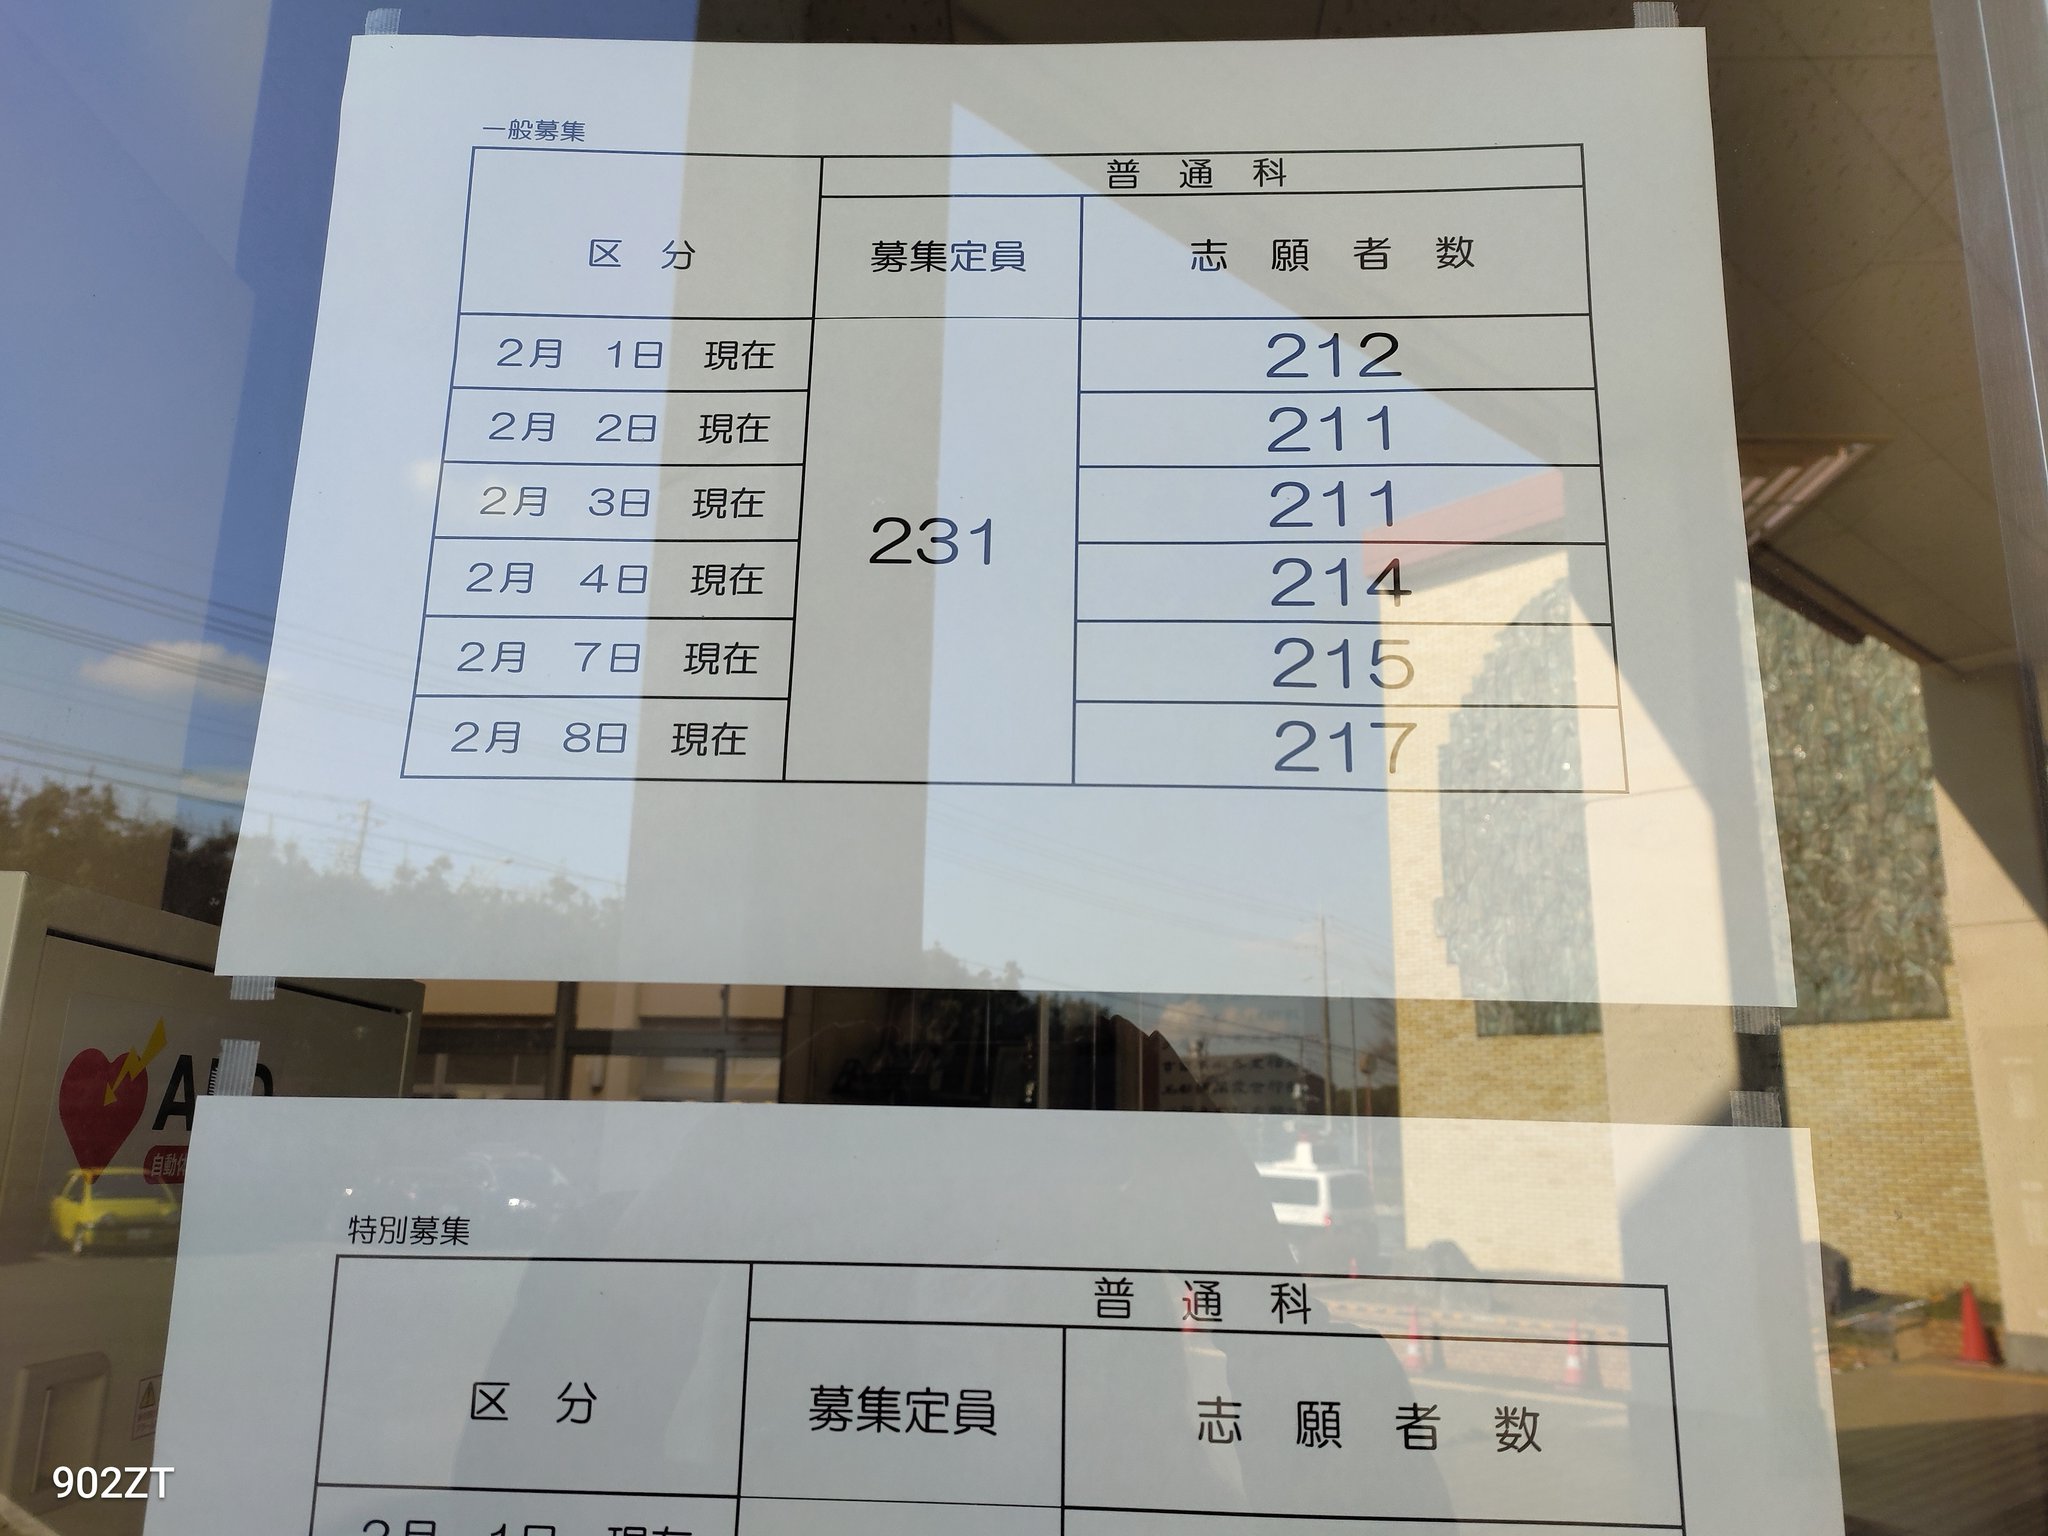 一般募集
普 通 科
区 分 募集定員 志 願 者 数
2月 1日 現在 212
2月 2日 現在 211
2月 3日 現在 211
231
2月 4日 現在 214
2月 7日 現在 215
2月 8日 現在 217
自動体
特別募集
普 通 科
区 分 募集定員 志 願 者 数
2月 1日 現在
902ZT